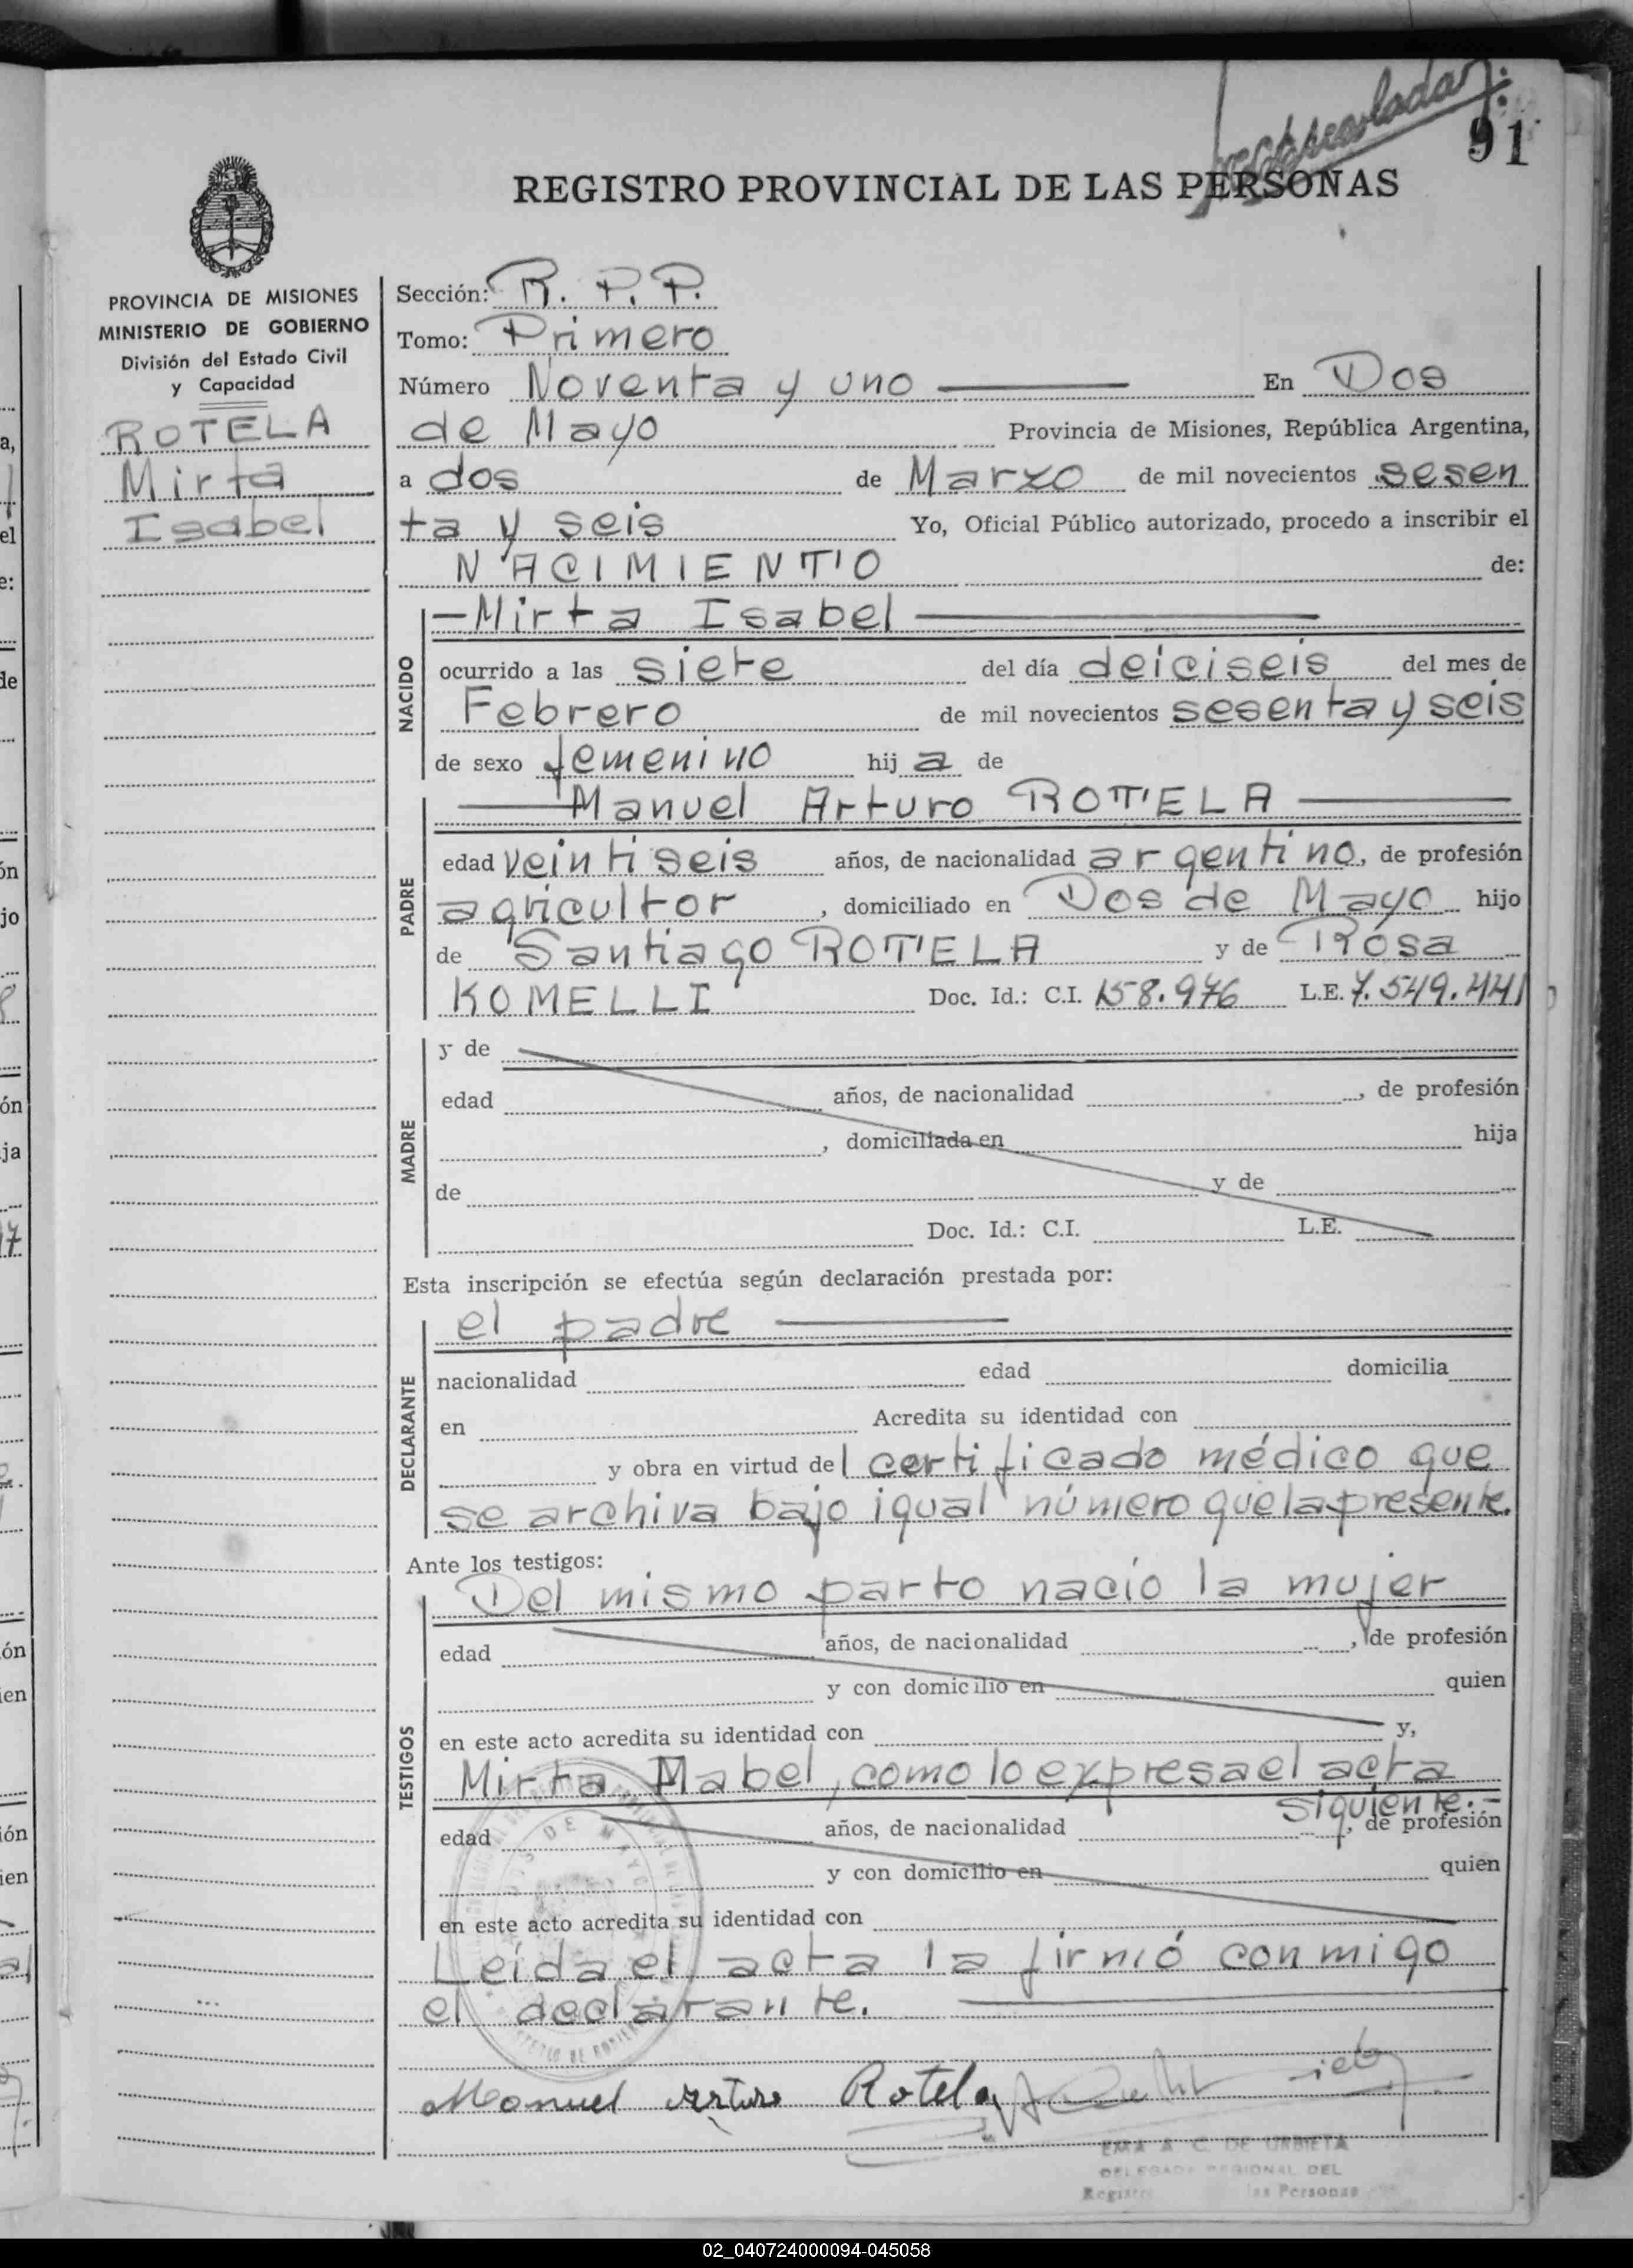 91
REGISTRO PROVINCIAL DE LAS PERSONAS
PROVINCIA DE MISIONES
MINISTERIO DE GOBIERNO
División del Estado Civil
y Capacidad
ROTELA
Mirta
Isabel
Sección: R. P. P.
Tomo: Primero
Número Noventa y uno En Dos
de Mayo Provincia de Misiones, República Argentina,
a dos de Marzo de mil novecientos sesen
ta y seis Yo, Oficial Público autorizado, procedo a inscribir el
NACIMIENTO de:
NACIDO
Mirta Isabel
ocurrido a las siete del día deiciseis del mes de
Febrero de mil novecientos sesenta y seis
de sexo femenino hij a de
PADRE
Manuel Arturo ROTELA
edad veintiseis años, de nacionalidad argentino, de profesión
agricultor, domiciliado en Dos de Mayo hijo
de Santiago ROTELA y de Rosa
KOMELLI Doc. Id.: C.I. 158.976 L.E. 7.549.441
MADRE
y de
edad años, de nacionalidad , de profesión
, domiciliada en hija
de y de
Doc. Id.: C.I. L.E.
Esta inscripción se efectúa según declaración prestada por:
DECLARANTE
el padre
nacionalidad edad domicilia
en Acredita su identidad con
y obra en virtud del certificado médico que
se archiva bajo igual número que la presente.
Ante los testigos:
TESTIGOS
Del mismo parto nació la mujer
edad años, de nacionalidad , de profesión
y con domicilio en quien
en este acto acredita su identidad con y,
Mirta Mabel, como lo expresa el acta
siguiente.-
edad años, de nacionalidad , de profesión
y con domicilio en quien
en este acto acredita su identidad con
Leída el acta la firmó conmigo
el declarante.
Manuel Arturo Rotela
EMA A. C. DE URBIETA
DELEGADA REGIONAL DEL
Registro las Personas
02_040724000094-045058